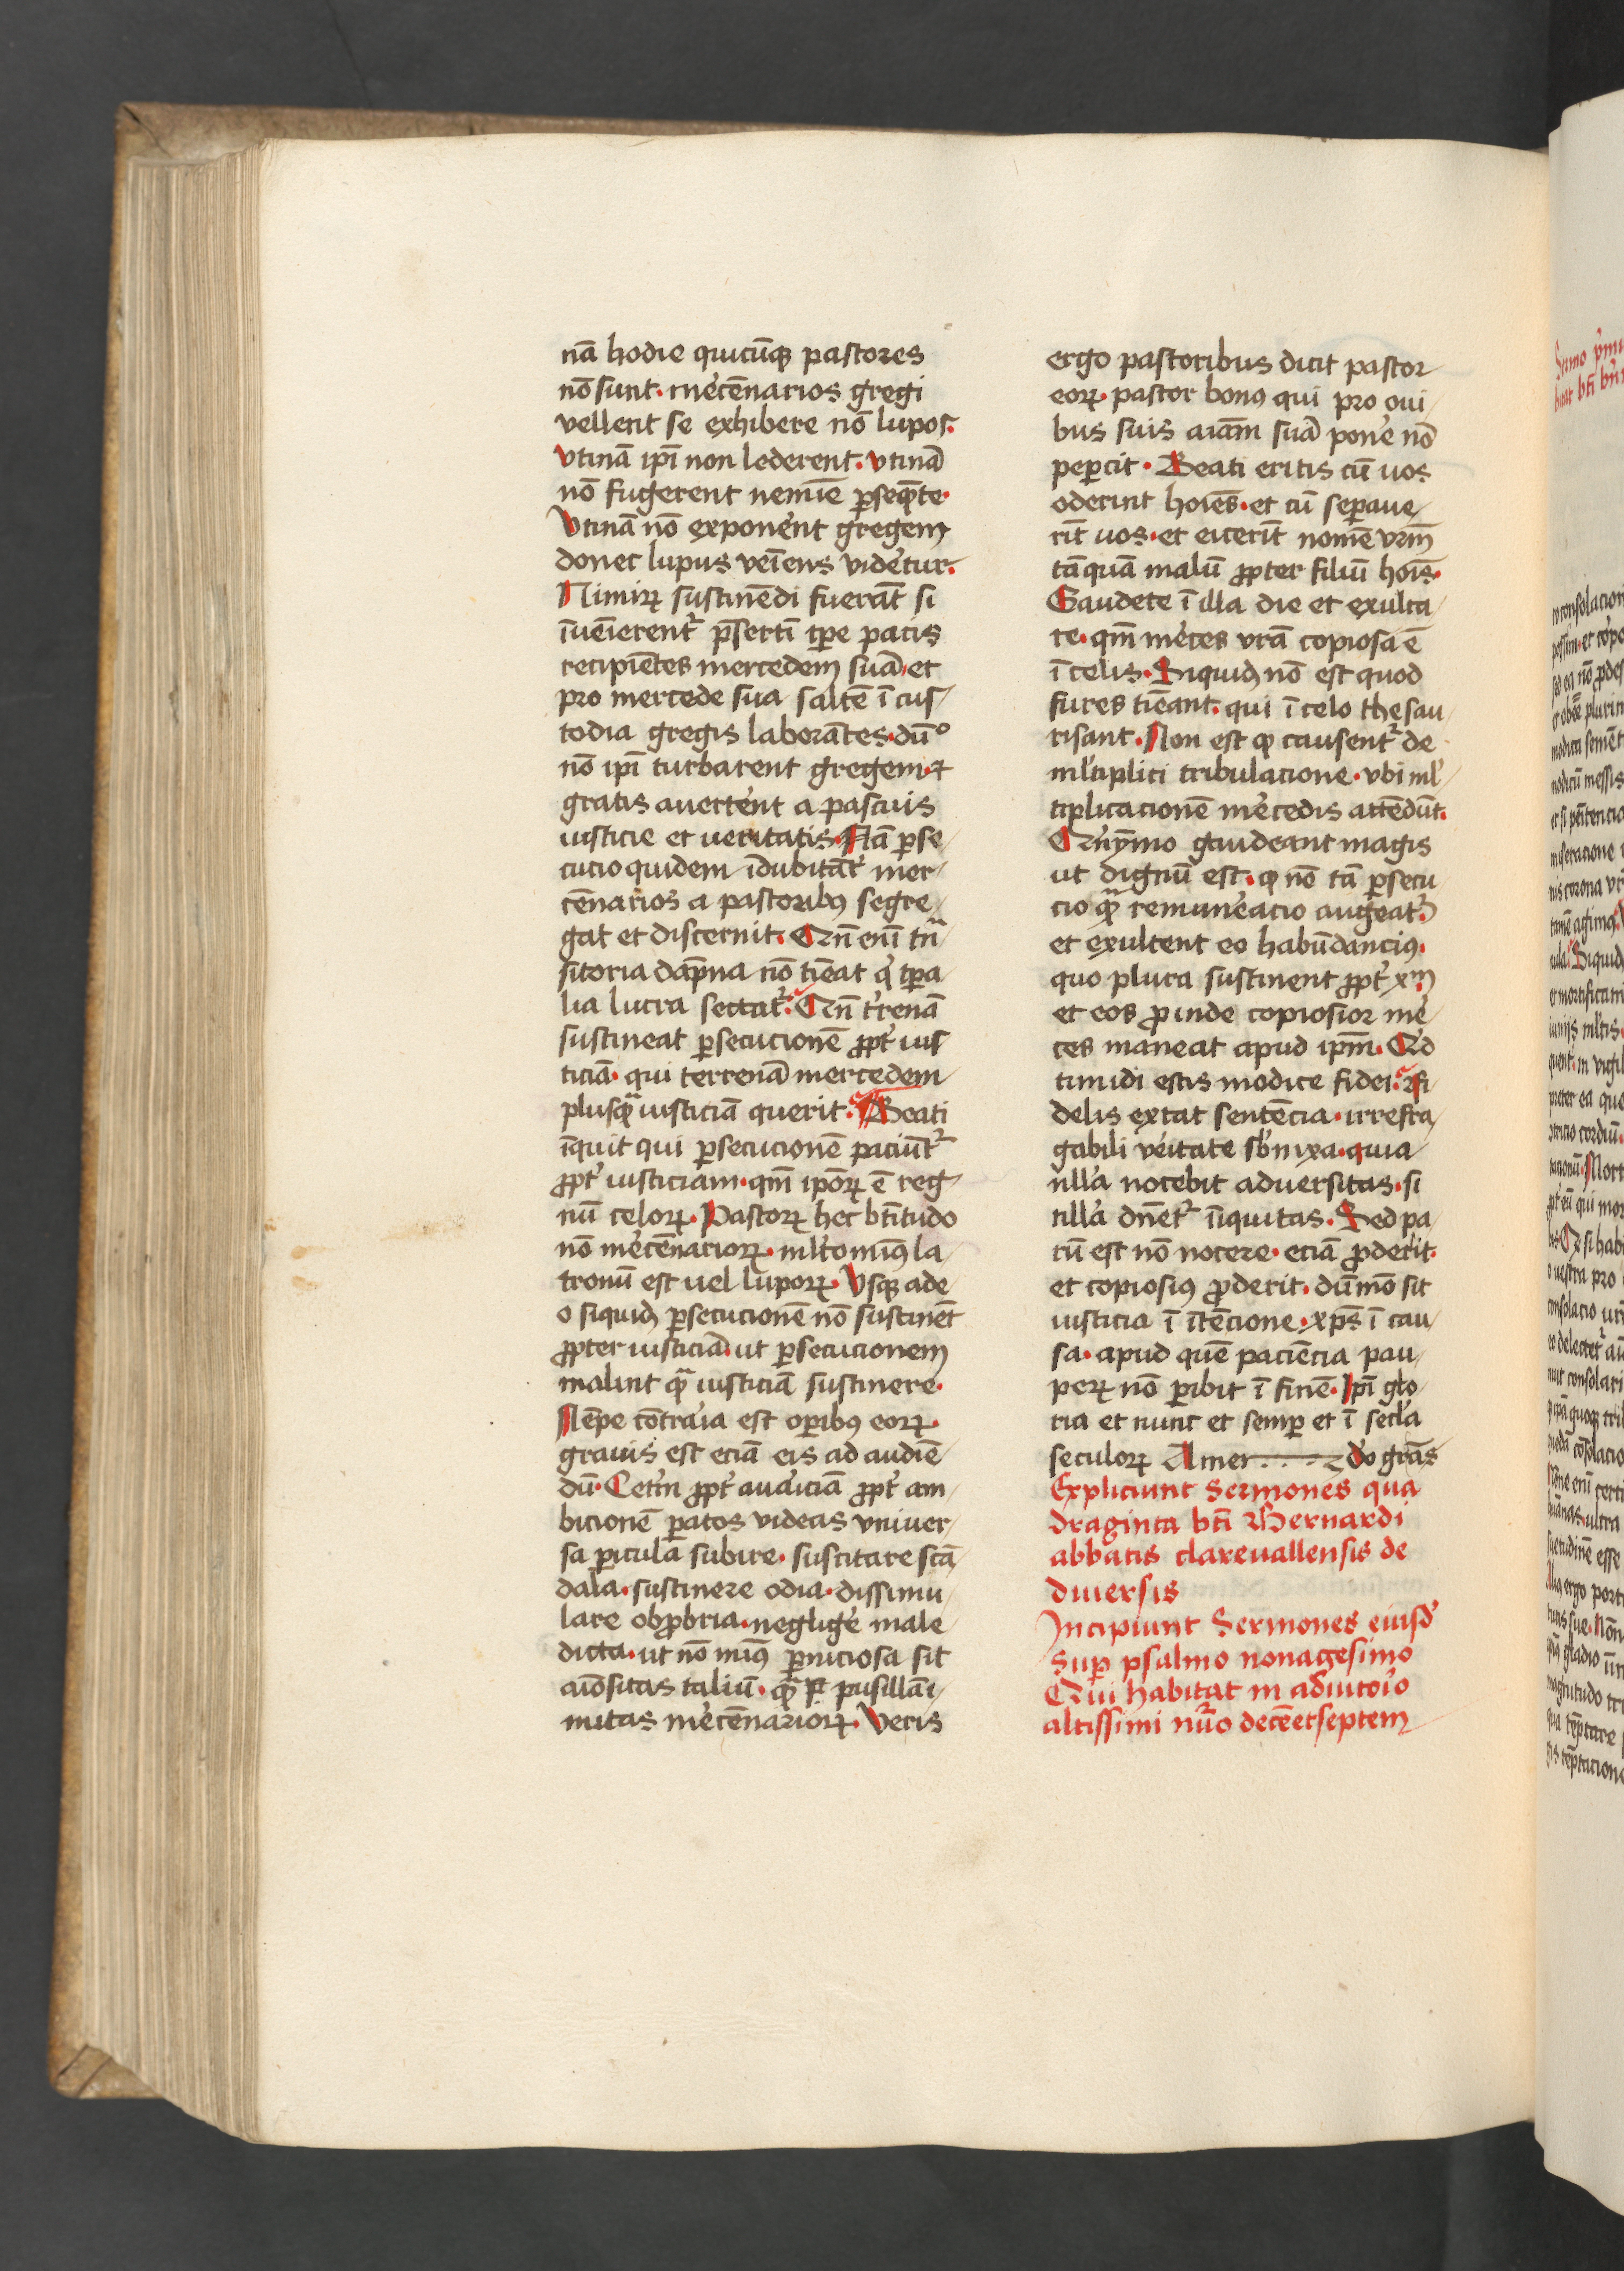 nā hodie quicūqꝫ pastores
nō sunt· mercēnarios gregi
vellent se exhibere nō lupos·
vtinā ip̄i non lederent· vtinā
nō fugerent nemīe ꝑseq̄nte·
Vtinā nō exponerent gregem
donec lupus veīens videtur·
Nimirꝝ sustinēdi fuerāt si
īuēierent᷑ p̄sertī tꝑe pacis
recipiētes mercedem suā· et
pro mercede sua saltē ī cus
todia gregis laborātes· dūº
nō ip̄i turbarent gregem· ⁊
gratis averterent a pascuis
iusticie et veritatis· Nā ꝑse
cucio quidem īdubitāt᷑ mer
cēnarios a pastoribꝰ segre
gat et discernit· Qn̄ enī tn̄ᵃ
sitoria dāpna nō tīeat qͥ tꝑa
lia lucra sectat᷑· Qn̄ t᷑renā
sustineat ꝑsecucionē ꝓpt᷑ ius
ticiā· qui terrenā mercedem
plusqᷓ iusticiā querit· Beati
īquit qui ꝑsecucionē paciūt᷑
ꝓpt᷑ iusticiam· qm̄ ip̄oꝝ ē reg
nū celoꝝ· Pastoꝝ hec bt̄itudo
nō mercēnarioꝝ· ml̄tomīꝰ la
tronū est uel lupoꝝ· Vsqꝫ ade
o siquidē ꝑsecucionē nō sustinēt
ꝓpter iusticiā· ut ꝑsecucionem
malint qᷓ iusticiā sustinere·
Nēpe cōtraria est oꝑibꝰ eoꝝ·
grauis est eciā eis ad audiē
dū· Cet᷑m ꝓpt᷑ auariciā ꝓpt᷑ am
bicionē ꝑatos videas vniuer
sa ꝑicula subire· suscitare scā
dala· sustinere odia· dissimu
lare obꝓbria· negligere male
dicta· ut nō mīꝰ ꝑniciosa sit
aīōsitas taliū· qᷓ pusillāi
mitas mercēnarioꝝ· Veris
ergo pastoribus dicit pastor
eoꝝ· pastor bonꝰ qui pro oui
bus suis aīam suā ponere nō
peꝑcit· Beati eritis cū uos
oderint hoīes· et cū seꝑaue
rīt uos· et eicerīt nomē vr̄m
tāquā malū ꝓpter filiū hoīs·
Gaudete ī illa die et exulta
te· qm̄ merces vr̄a copiosa ē
ī celis· Siquidē nō est quod
fures tīeant· qui ī celo thesau
risant· Non est ꝙ causent᷑ de
ml̄tiplici tribulacione· vbi ml̄
tiplicacionē mercedis attēdūt·
Qnȳmo gaudeant magis
ut dignū est· ꝙ nō tā ꝑsecu
cio qᷓ remuneracio augeat᷑·
et exultent eo habūdanciꝰ·
quo plura sustinent ꝓpt᷑ xᵐ·
et eos ꝓinde copiosior mer
ces maneat apud ip̄m· Qd
timidi estis modice fidei· fi
delis extat sentēcia· irrefra
gabili veritate sb᷑nixa· quia
nll᷑a nocebit aduersitas· si
nll᷑a dn̄et᷑ īiquitas· Sed pa
rū est nō nocere· eciā ꝓderit·
et copiosiꝰ ꝓderit· dūmō sit
iusticia ī ītēcione· xp̄s ī cau
sa· apud quē paciēcia pau
peꝝ nō ꝑibit ī finē· Ip̄i glo
ria et nunc et semꝑ et ī sec̄la
seculoꝝ Amen Dō grās
Expliciunt Sermones qua
draginta bt̄i Bernardi
abbatis clareuallensis de
diuersis
Incipiunt Sermones eiusd᷑
Suꝑ psalmo nonagesimo
Qui habitat in adiutorio
altissimi nūo decē et septem